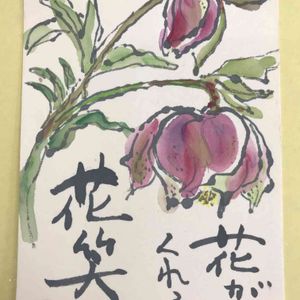 花が
くれ
花笑